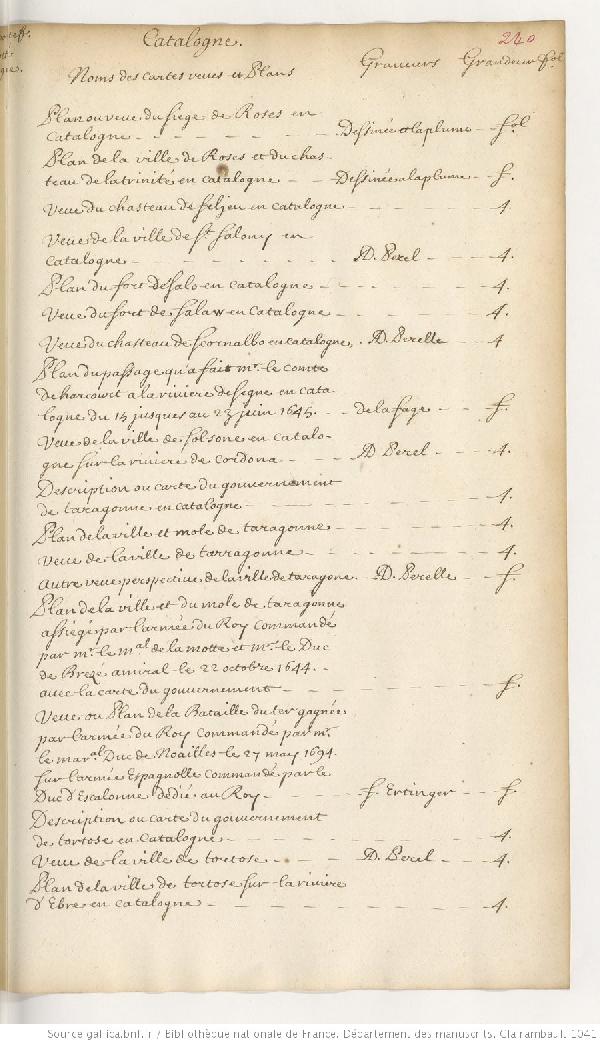 Catalogne.
240
Noms des cartes veues et Plans Graveurs Grandeur fol
Plan ou veue du siege de Roses en
Catalogne - - - - - - Dessinée et la plume - fol
Plan de la ville de Roses et du chas-
teau de la trinité en catalogne - - Dessinée a la plume - f.
Veue du chasteau de en catalogne - - - - 4.
Veue de la ville de St Salony en
Catalogne - - - - - - D. Perel - - - 4.
Plan du fort en catalogne - - - - - 4.
Veue du fort de Salaw en Catalogne - - - - - 4.
Veue du chasteau de en catalogne, . AD. Perelle - - 4
Plan du passage qu'a fait mr. le comte
de harcourt a la riviere de segre en cata
logne du 15 jusques au 23 juin 1645. - - de la fage - - f.
Veue de la ville de solsone en Catalo-
gne sur la riviere de cordona - - - AD Perel - - 4.
Description ou carte du gouvernement
de taragonne en catalogne - - - - - - 4.
Plan de la ville et mole de taragonne - - - - - 4.
Veue de la ville de tarragonne - - - - - - 4.
autre veue perspective de la ville de taragone. AD. Perelle - - f.
Plan de la ville et du mole de taragonne
assiégé par l'armée du Roy Commandé
par mr. le mal de la motte et mr. le Duc
de Brezé amiral le 22 octobre 1644. -
avec la carte du gouvernement - - - - - f.
Veue ou Plan de la Bataille du ter gagnée
par l'armée du Roy Commandé par mr.
le maral Duc de Noailles le 27 may 1694.
sur l'armée Espagnolle Commandé par le
Duc d'Escalonne dedié au Roy - - - f. Ertinger - - f.
Description ou carte du gouvernement
de tortose en Catalogne - - - - - - 4.
Veue de la ville de tortose - - - AD. Perel - - 4.
Plan de la ville de tortose sur la riviere
d'Ebre en catalogne - - - - - - 4.
Source gallica.bnf.fr / Bibliothèque nationale de France. Département des manuscrits. Clairambault 1041